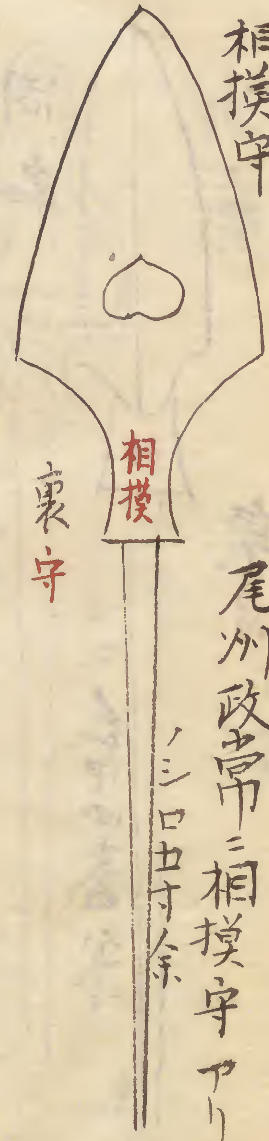 相摸守
相摸
裏守
尾州政常ニ相摸守アリ
ノシロ五寸余